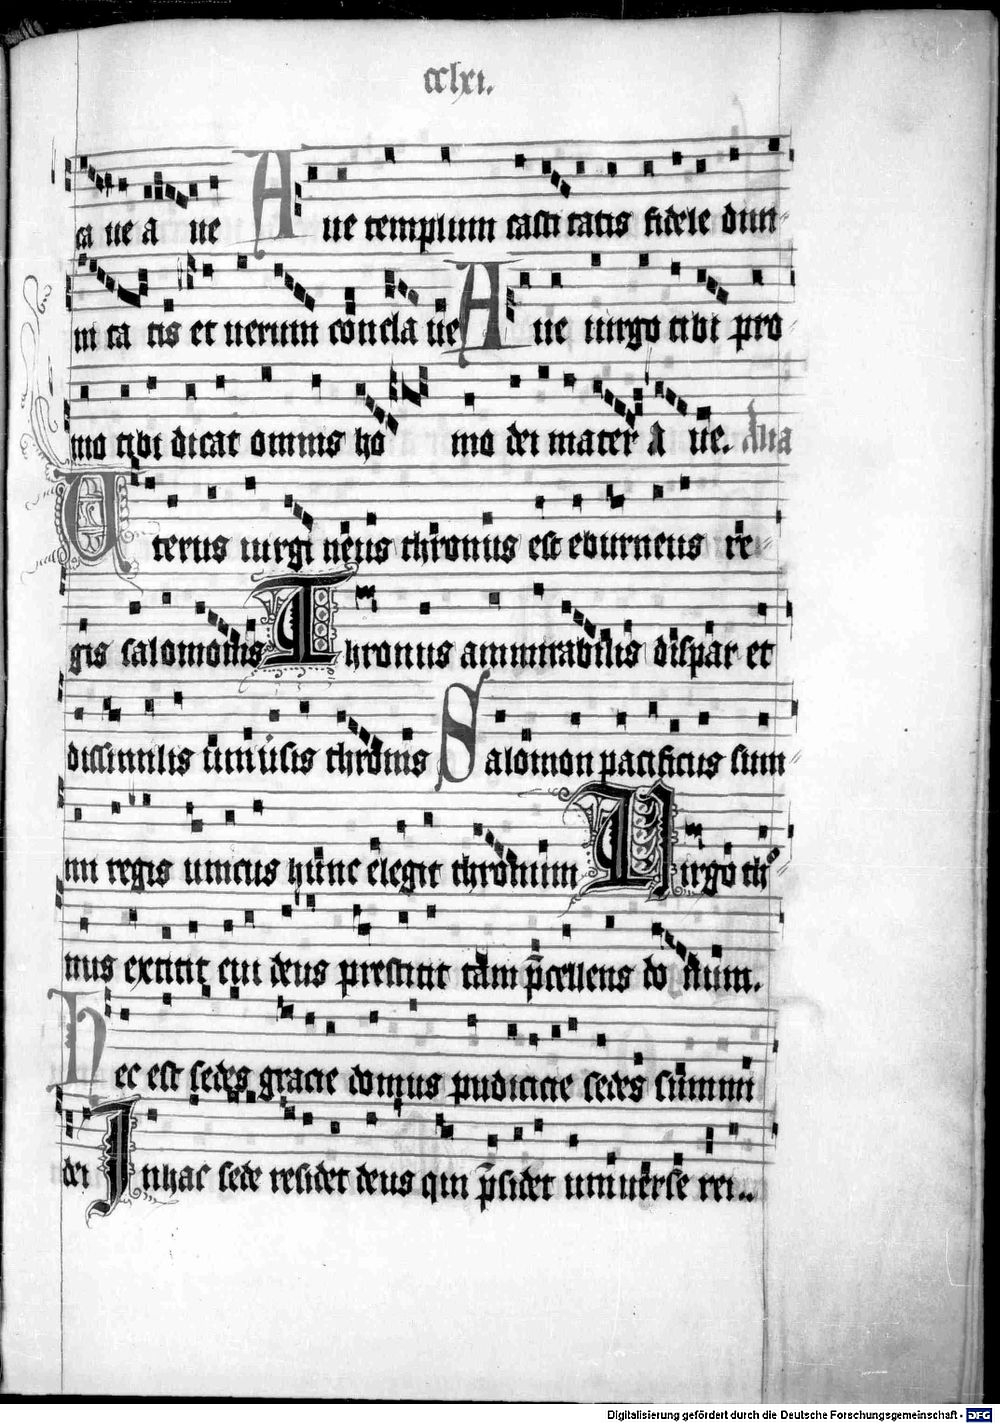 cclxi.
ta ue a ue A ue templum casti tatis fidele diui-
ni ta tis et uerum concla ue A ue uirgo tibi pro
mo tibi dicat omnis ho mo dei mater a ue. Alia
U terus uirgi neus thronus est eburneus re-
gis salomonis Thronus ammirabilis dispar et
dissimilis uniuersis thronis Salomon pacificus sum-
mi regis unicus hunc elegit thronum Uirgo tho
nus extitit cui deus prestitit tam p̄cellens do num.
Hec est sedes gracie domus pudicicie sedes summi
dei In hac sede residet deus qui p̄sidet uniuerse rei..
Digitalisierung gefördert durch die Deutsche Forschungsgemeinschaft - DFG